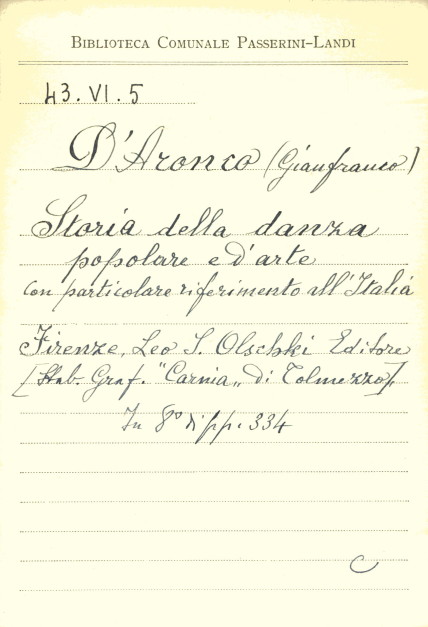 BIBLIOTECA COMUNALE PASSERINI-LANDI
43.VI.5
D'Aronco (Gianfranco)
Storia della danza
popolare e d'arte
con particolare riferimento all'Italia
Firenze, Leo S. Olschki Editore
[Stab. Graf. "Carnia„ di Tolmezzo],
In 8° di pp. 334
C